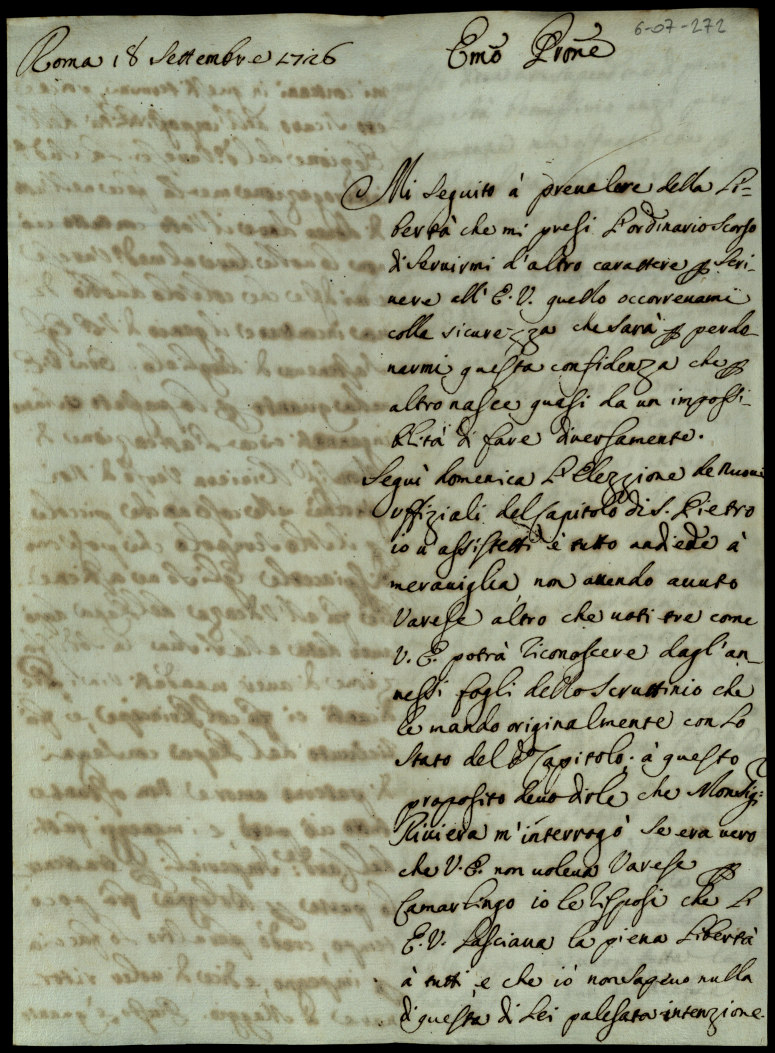 6-07-272
Roma 18 Settembre 1726
Emõ Prone
Mi seguito à prevalere della Li=
bertà che mi presi l'ordinario scorso
di servirmi d'altro carattere p scri-
vere all' E. V. quello occorrevami
colla sicurezza che sarà p perdo-
narmi questa confidenza che p
altro nasce quasi da un impossi-
bilità di fare diversamente.
Seguì domenica l'Elezzione de nuovi
uffiziali del Capitolo di S. Pietro
io v'assistetti è tutto andiede à
meraviglia, non avendo avuto
Varese altro che voti tre come
V. E. potrà riconoscere dagl'an-
nessi fogli dello scruttinio che
le mando originalmente con lo
stato del do Capitolo. à questo
proposito devo dirle che Monsig:
Riviera m'interrogò se era vero
che V. E. non voleva Varese p
Camarlingo io le risposi che li
E. V. lasciava la piena libertà
à tutti e che iò non sapevo nulla
di questa di lei palesata intenzione.